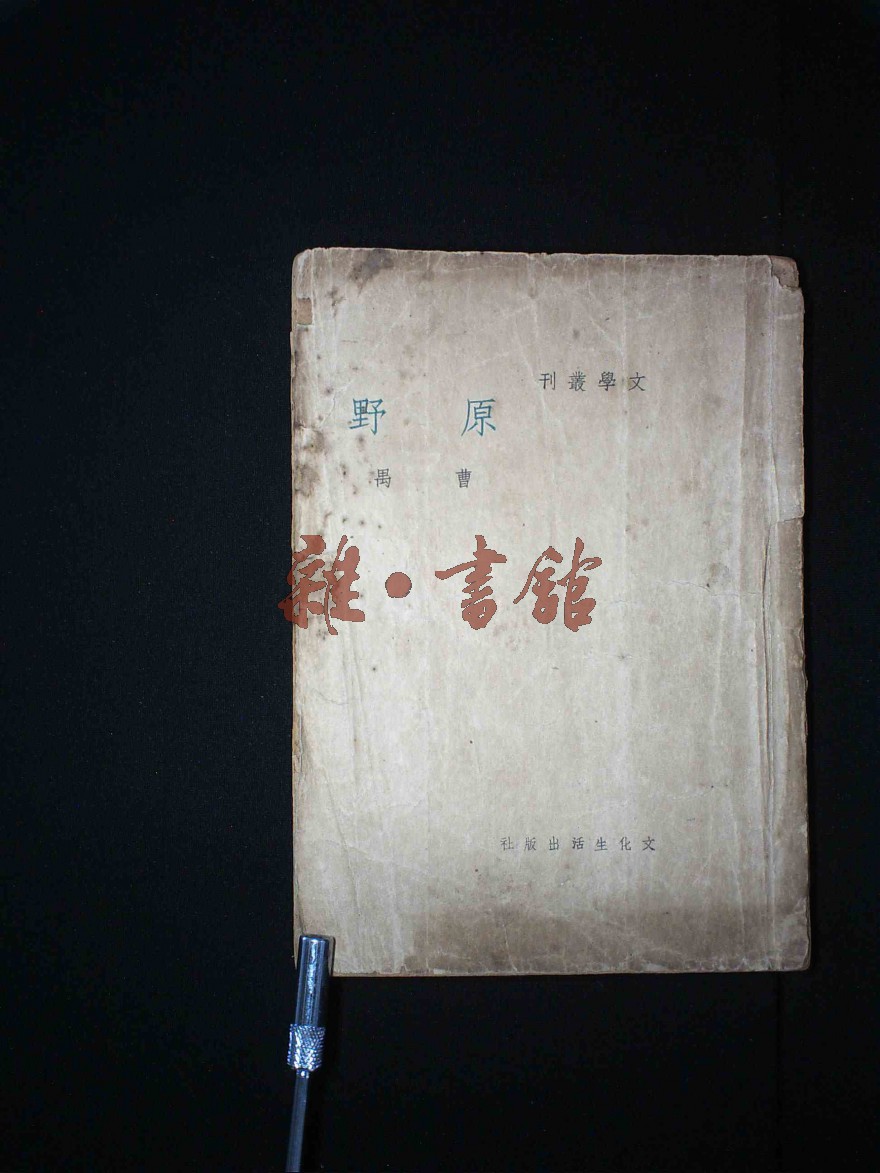 文學叢刊
原野
曹禺
雜·書館
文化生活出版社